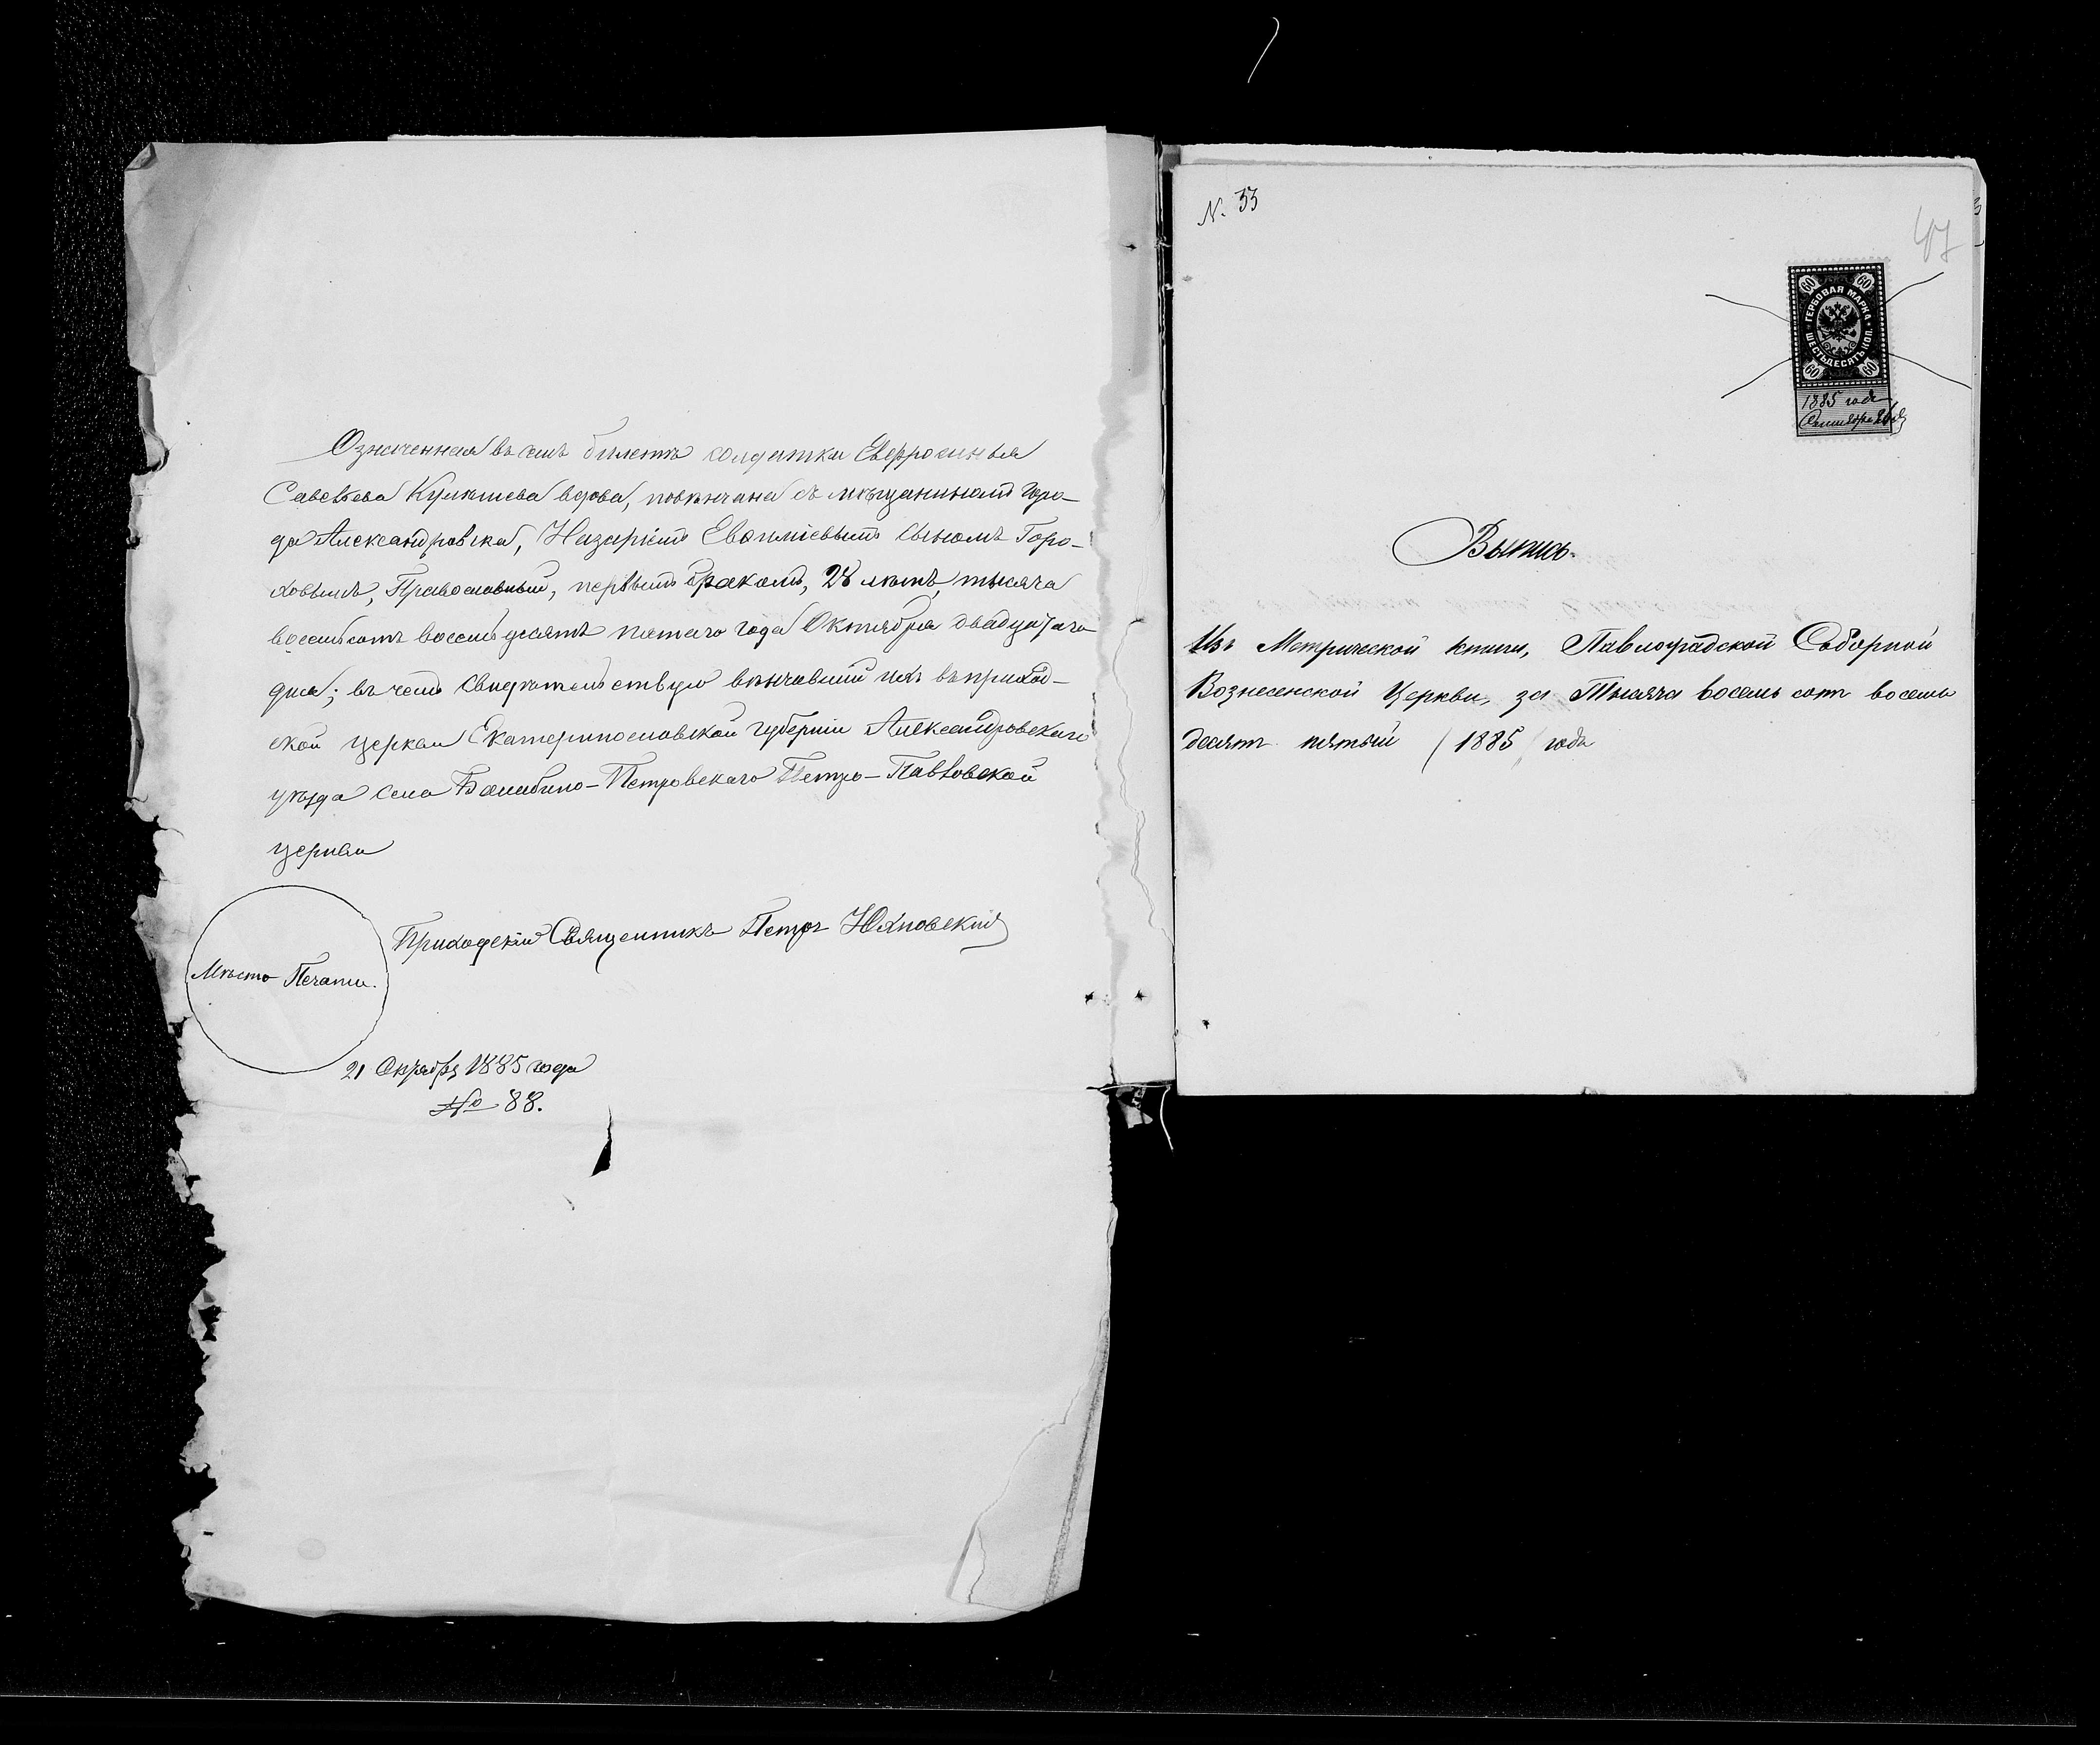 Означенная въ семъ билетѣ солдатка Евфросинья
Савельева вдова, повѣнчана съ мѣщаниномъ горо-
да Александровска, Назаріемъ Евѳиміевымъ сыномъ Горо-
ховымъ, Православный, первымъ бракомъ, 28 лѣтъ, тысяча
восемьсотъ восемьдесятъ пятаго года Октября двадцатаго
дня; въ чемъ свидѣтельствую вѣнчавшій ихъ въ приход-
ской церкви Екатеринославской губерніи Александровскаго
уѣзда села Петровскаго Петро-Павловской
церкви
Приходскій Священникъ Петръ Юхновскій
Мѣсто Печати.
21 Октября 1885 года
№ 88.
N. 33
47
60 60
ГЕРБОВАЯ МАРКА
ШЕСТЬДЕСЯТЪ КОП.
60 60
1885 года
Выпись.
Изъ Метрической книги, Павлоградской Соборной
Вознесенской Церкви, за Тысяча восемь сот восемь
десятъ пятый (1885) годъ